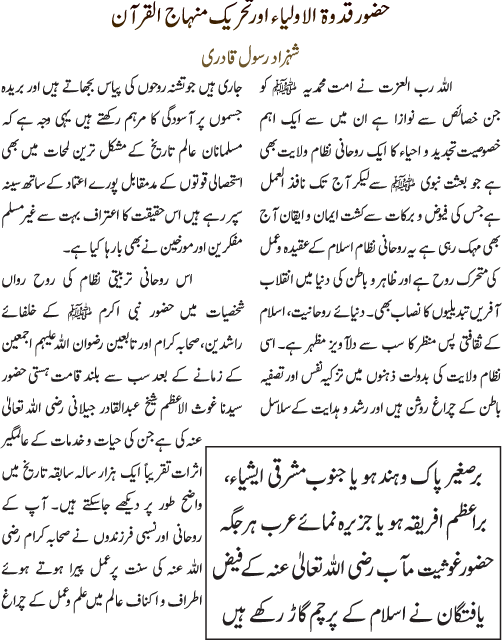 حضور قدوۃ الاولیاء اور تحریک منہاج القرآن
شہزاد رسول قادری
اللہ رب العزت نے امت محمدیہ ﷺ کو
جن خصائص سے نوازا ہے ان میں سے ایک اہم
خصوصیت تجدید و احیاء کا ایک روحانی نظام ولایت بھی
ہے جو بعثت نبوی ﷺ سے لیکر آج تک نافذ العمل
ہے جس کی فیوض و برکات سے کشت ایمان و ایقان آج
بھی مہک رہی ہے یہ روحانی نظام اسلام کے عقیدہ و عمل
کی متحرک روح ہے اور ظاہر و باطن کی دنیا میں انقلاب
آفریں تبدیلیوں کا نصاب بھی۔ دنیائے روحانیت، اسلام
کے ثقافتی پس منظر کا سب سے دلآویز مظہر ہے۔ اسی
نظام ولایت کی بدولت ذہنوں میں تزکیہ نفس اور تصفیہ
باطن کے چراغ روشن ہیں اور رشد و ہدایت کے سلاسل
جاری ہیں جو تشنہ روحوں کی پیاس بجھاتے ہیں اور بریدہ
جسموں پر آسودگی کا مرہم رکھتے ہیں یہی وجہ ہے کہ
مسلمانان عالم تاریخ کے مشکل ترین لمحات میں بھی
استحصالی قوتوں کے مدمقابل پورے اعتماد کے ساتھ سینہ
سپر رہے ہیں اس حقیقت کا اعتراف بہت سے غیر مسلم
مفکرین اور مورخین نے بھی بارہا کیا ہے۔
اس روحانی تربیتی نظام کی روح رواں
شخصیات میں حضور نبی اکرم ﷺ کے خلفائے
راشدین، صحابہ کرام اور تابعین رضوان اللہ علیہم اجمعین
کے زمانے کے بعد سب سے بلند قامت ہستی حضور
سیدنا غوث الاعظم شیخ عبدالقادر جیلانی رضی اللہ تعالیٰ
عنہ کی ہے جن کی حیات و خدمات کے عالمگیر
اثرات تقریباً ایک ہزار سالہ سابقہ تاریخ میں
واضح طور پر دیکھے جاسکتے ہیں۔ آپ کے
روحانی اور نسبی فرزندوں نے صحابہ کرام رضی
اللہ عنہ کی سنت پر عمل پیرا ہوتے ہوئے
اطراف و اکناف عالم میں علم و عمل کے چراغ
برصغیر پاک و ہند ہو یا جنوب مشرقی ایشیاء،
براعظم افریقہ ہو یا جزیرہ نمائے عرب ہر جگہ
حضور غوثیت مآب رضی اللہ تعالیٰ عنہ کے فیض
یافتگان نے اسلام کے پرچم گاڑ رکھے ہیں